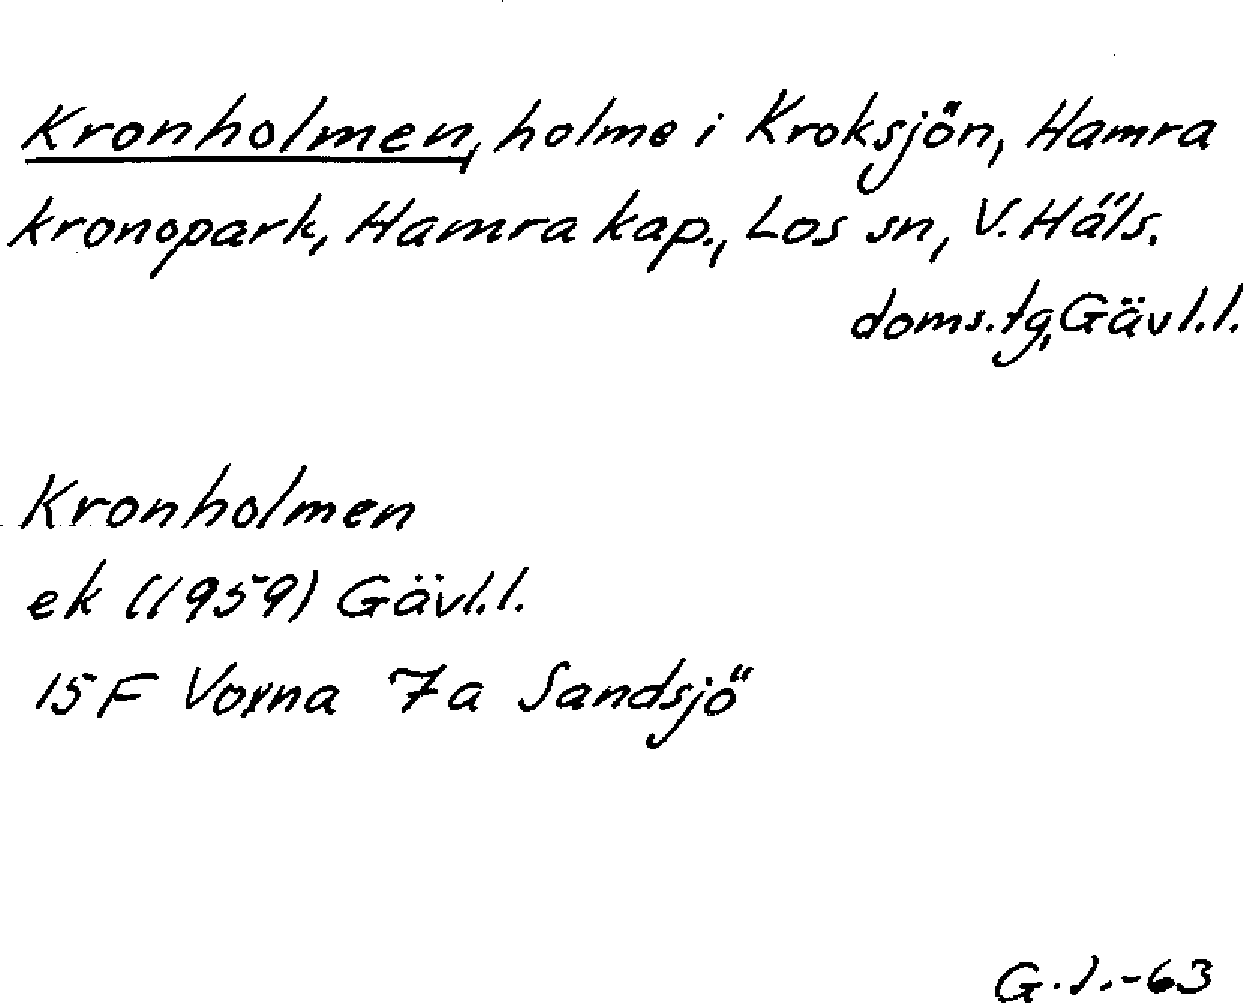 Kronholmen, holme i Kroksjön, Hamra
kronopark, Hamra kap., Los sn, V. Häls.
doms.tg, Gävl.l.
Kronholmen
ek (1959) Gävl.l.
15 F Voxna 7a Sandsjö
G.J.-63